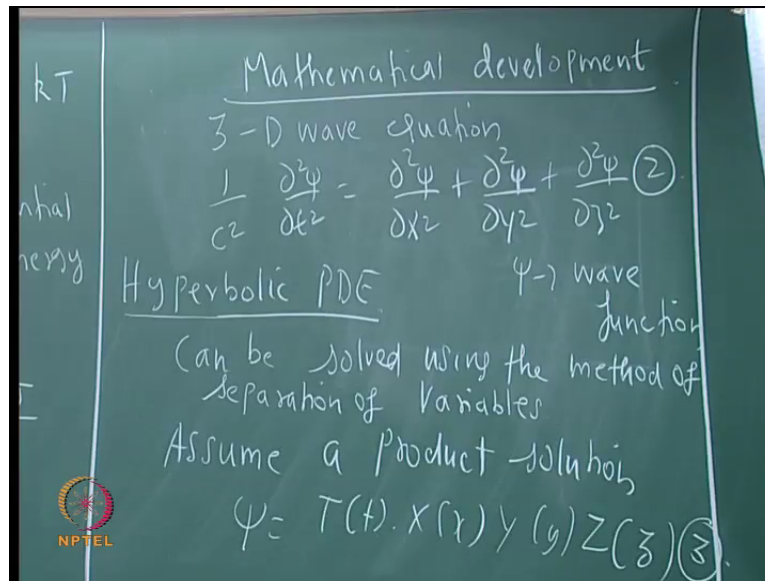 kT
ntial
nergy
Mathematical development
3-D wave equation
1/c² ∂²ψ/∂t² = ∂²ψ/∂x² + ∂²ψ/∂y² + ∂²ψ/∂z² ②
Hyperbolic PDE
ψ → wave
function
Can be solved using the method of
separation of Variables
Assume a product solution
ψ = T(t). X(x) Y(y) Z(z) ③
NPTEL